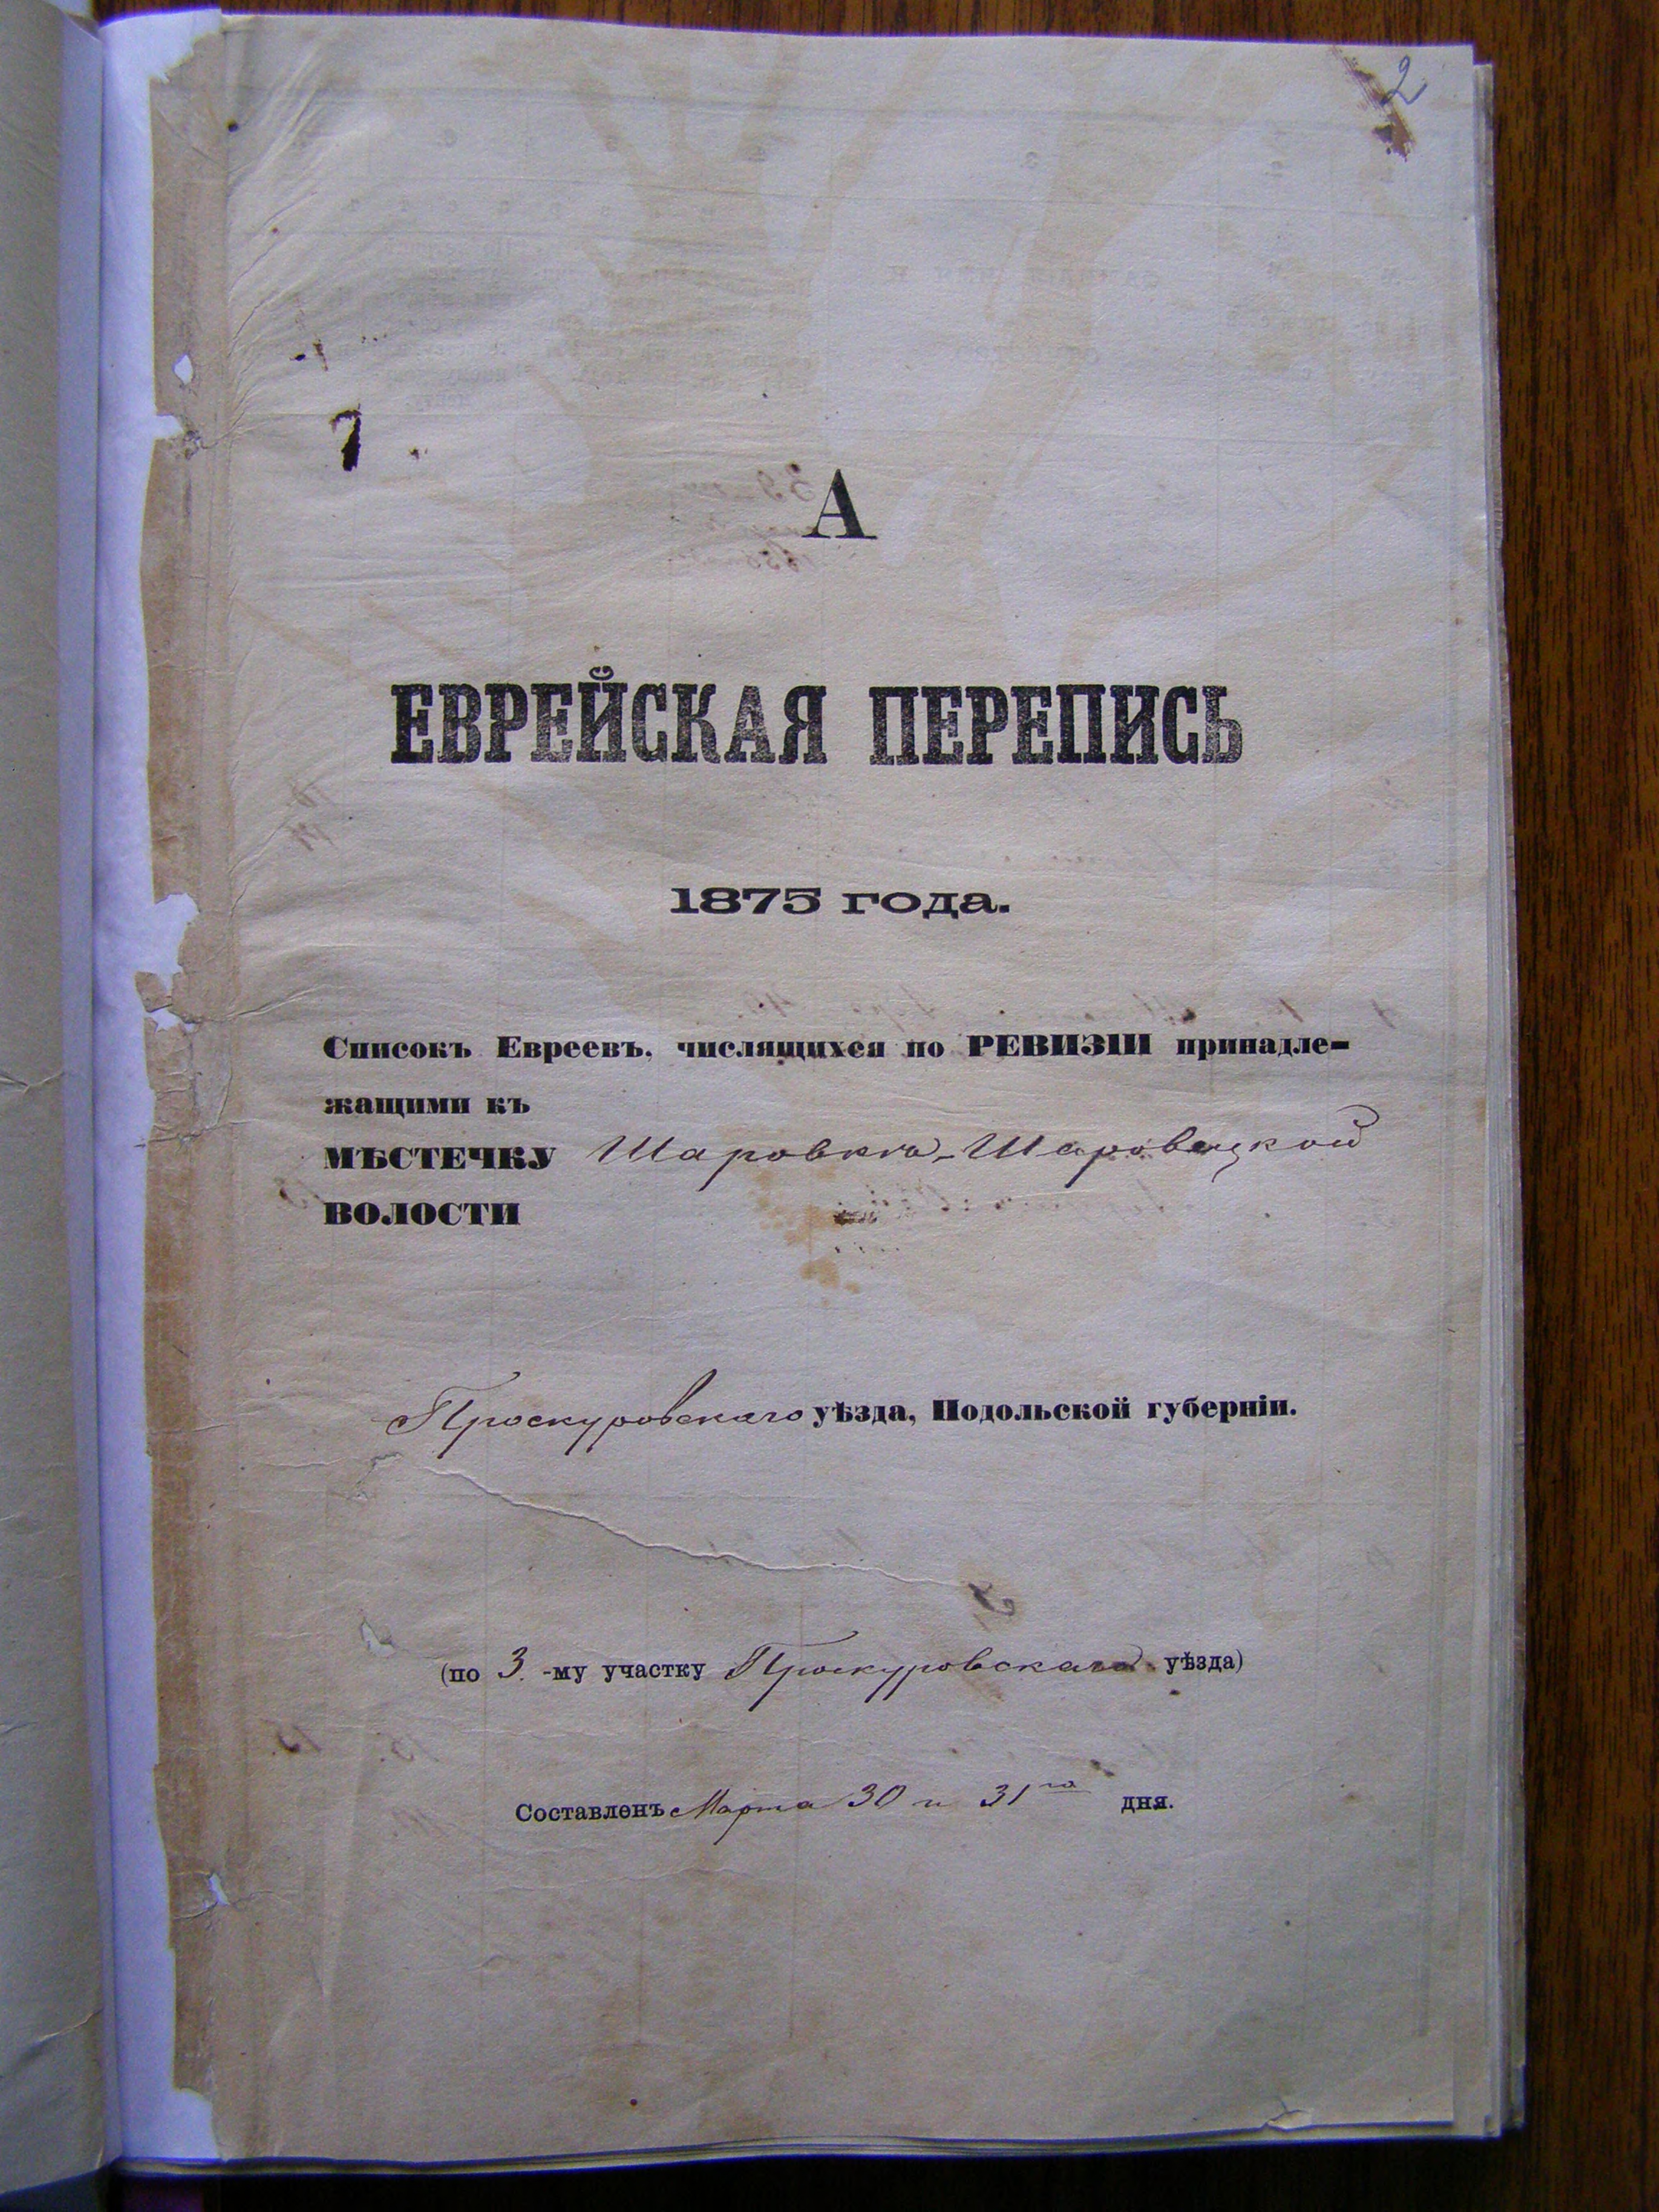 2
А
ЕВРЕЙСКАЯ ПЕРЕПИСЬ
1875 года.
Списокъ Евреевъ, числящихся по РЕВИЗІИ принадле-
жащими къ
МѢСТЕЧКУ Шаровка-Шаровецкой
ВОЛОСТИ
Проскуровскаго уѣзда, Подольской губерніи.
(по 3.-му участку Проскуровскаго уѣзда)
Составленъ Марта 30 и 31го дня.